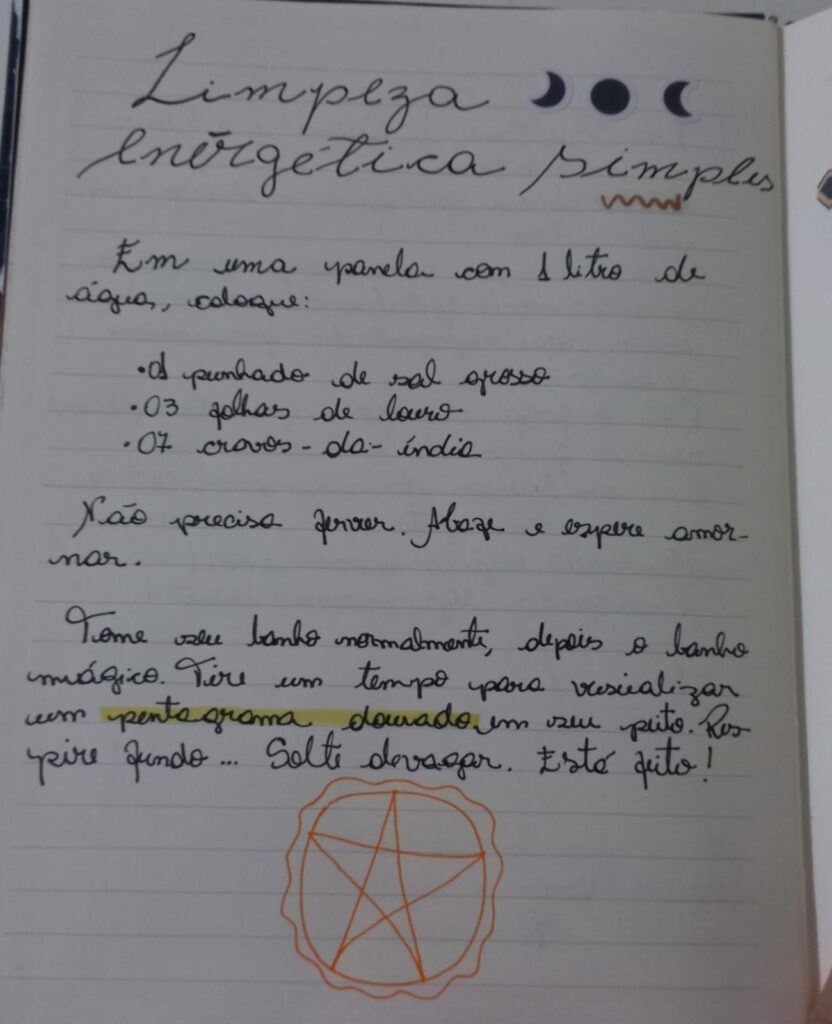 Limpeza
energética simples
Em uma panela com 1 litro de
água, coloque:
• 01 punhado de sal grosso
• 03 folhas de louro
• 07 cravos-da-índia
Não precisa ferver. Abafe e espere amor-
nar.
Tome seu banho normalmente, depois o banho
mágico. Tire um tempo para visualizar
um pentagrama dourado em seu peito. Res
pire fundo... Solte devagar. Está feito!